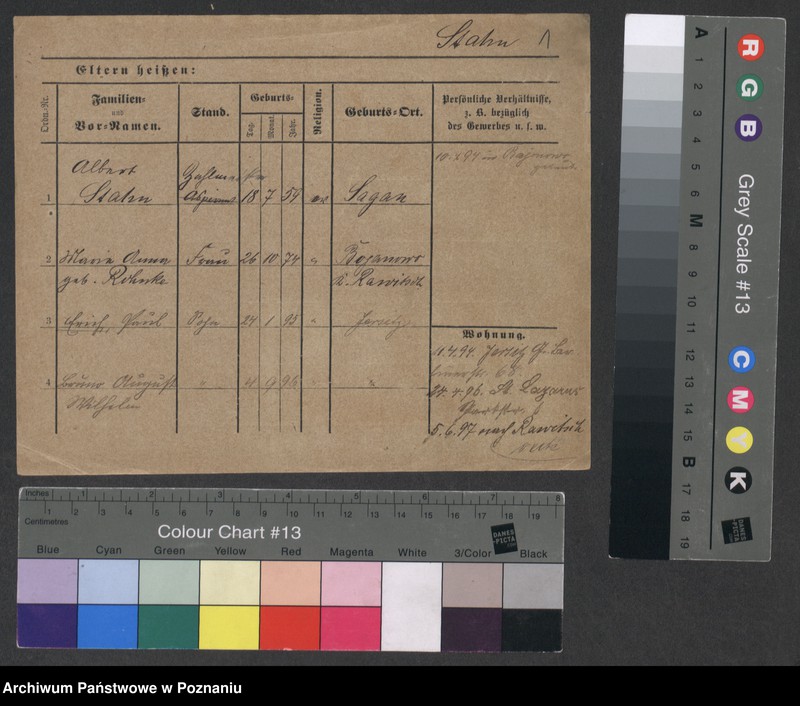 Stahn
Eltern heißen:
Ordn.-Nr.
Familien-
und
Vor-Namen.
Stand.
Geburts-
Tag.
Monat.
Jahr.
Religion.
Geburts-Ort.
Persönliche Verhältnisse,
z. B. bezüglich
des Gewerbes u. s. w.
Albert Zahlmeister
1 Stahn Aspirant 18 7 54 ev Sagan
2 Maria Anna Frau 26 10 74 " Bojanowo
geb. Rohnke Rawitsch
3 Erich, Paul Sohn 24 1 95 " Jersitz
4 Bruno August " 4 9 96 " "
Wilhelm
Wohnung.
11.4.94. Jersitz
24.4.96. St. Lazarus
5.6.97 nach Rawitsch
Inches 1 2 3 4 5 6 7 8
1 2 3 4 5 6 7 8 9 10 11 12 13 14 15 16 17 18 19
Centimetres
Colour Chart #13
DANES-PICTA
Blue Cyan Green Yellow Red Magenta White 3/Color Black
Grey Scale #13
R G B C M Y K
A 1 2 3 4 5 6 M 8 9 10 11 12 13 14 15 B 17 18 19
DANES-PICTA
Archiwum Państwowe w Poznaniu